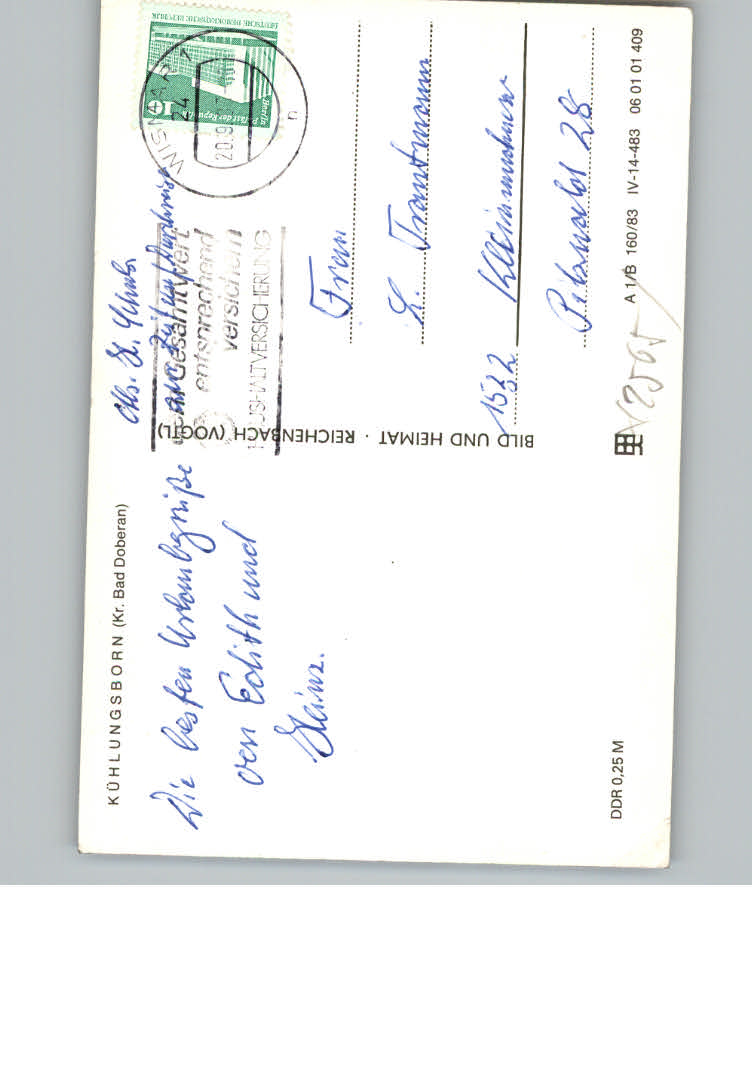 KÜHLUNGSBORN (Kr. Bad Doberan)
Die besten Urlaubsgrüße
von Edith und
Heinz.
DDR 0,25 M
BILD UND HEIMAT · REICHENBACH (VOGTL)
Abs. H.
DEUTSCHE DEMOKRATISCHE REPUBLIK
Palast der Republik
Berlin
10
WISMAR 1
24
20.9
n
Gesamtwert
entsprechend
versichern
HAUSHALTVERSICHERUNG
Frau
L. Trautmann
1522 Kleinmachnow
28
A 1/B 160/83 IV-14-483 06 01 01 409